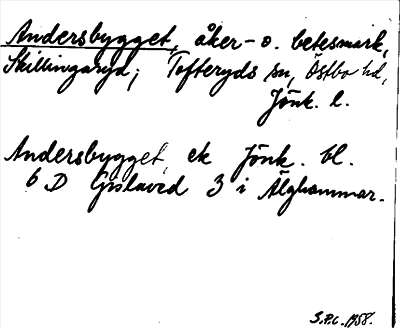 Andersbygget, åker- o. betesmark,
Skillingaryd; Tofteryds sn, Östbo hd,
Jönk. l.
Andersbygget, ek Jönk. bl.
6 D Gislaved 3 i Älghammar.
S.P.C. 1958.